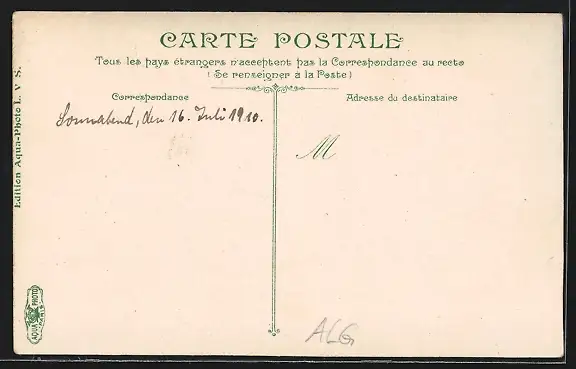 CARTE POSTALE
Tous les pays étrangers n'acceptent pas la Correspondance au recto
(Se renseigner à la Poste)
Correspondance
Adresse du destinataire
Sonnabend, den 16. Juli 1910.
M
Edition Aqua-Photo L. V. S.
AQUA PHOTO
PARIS
ALG